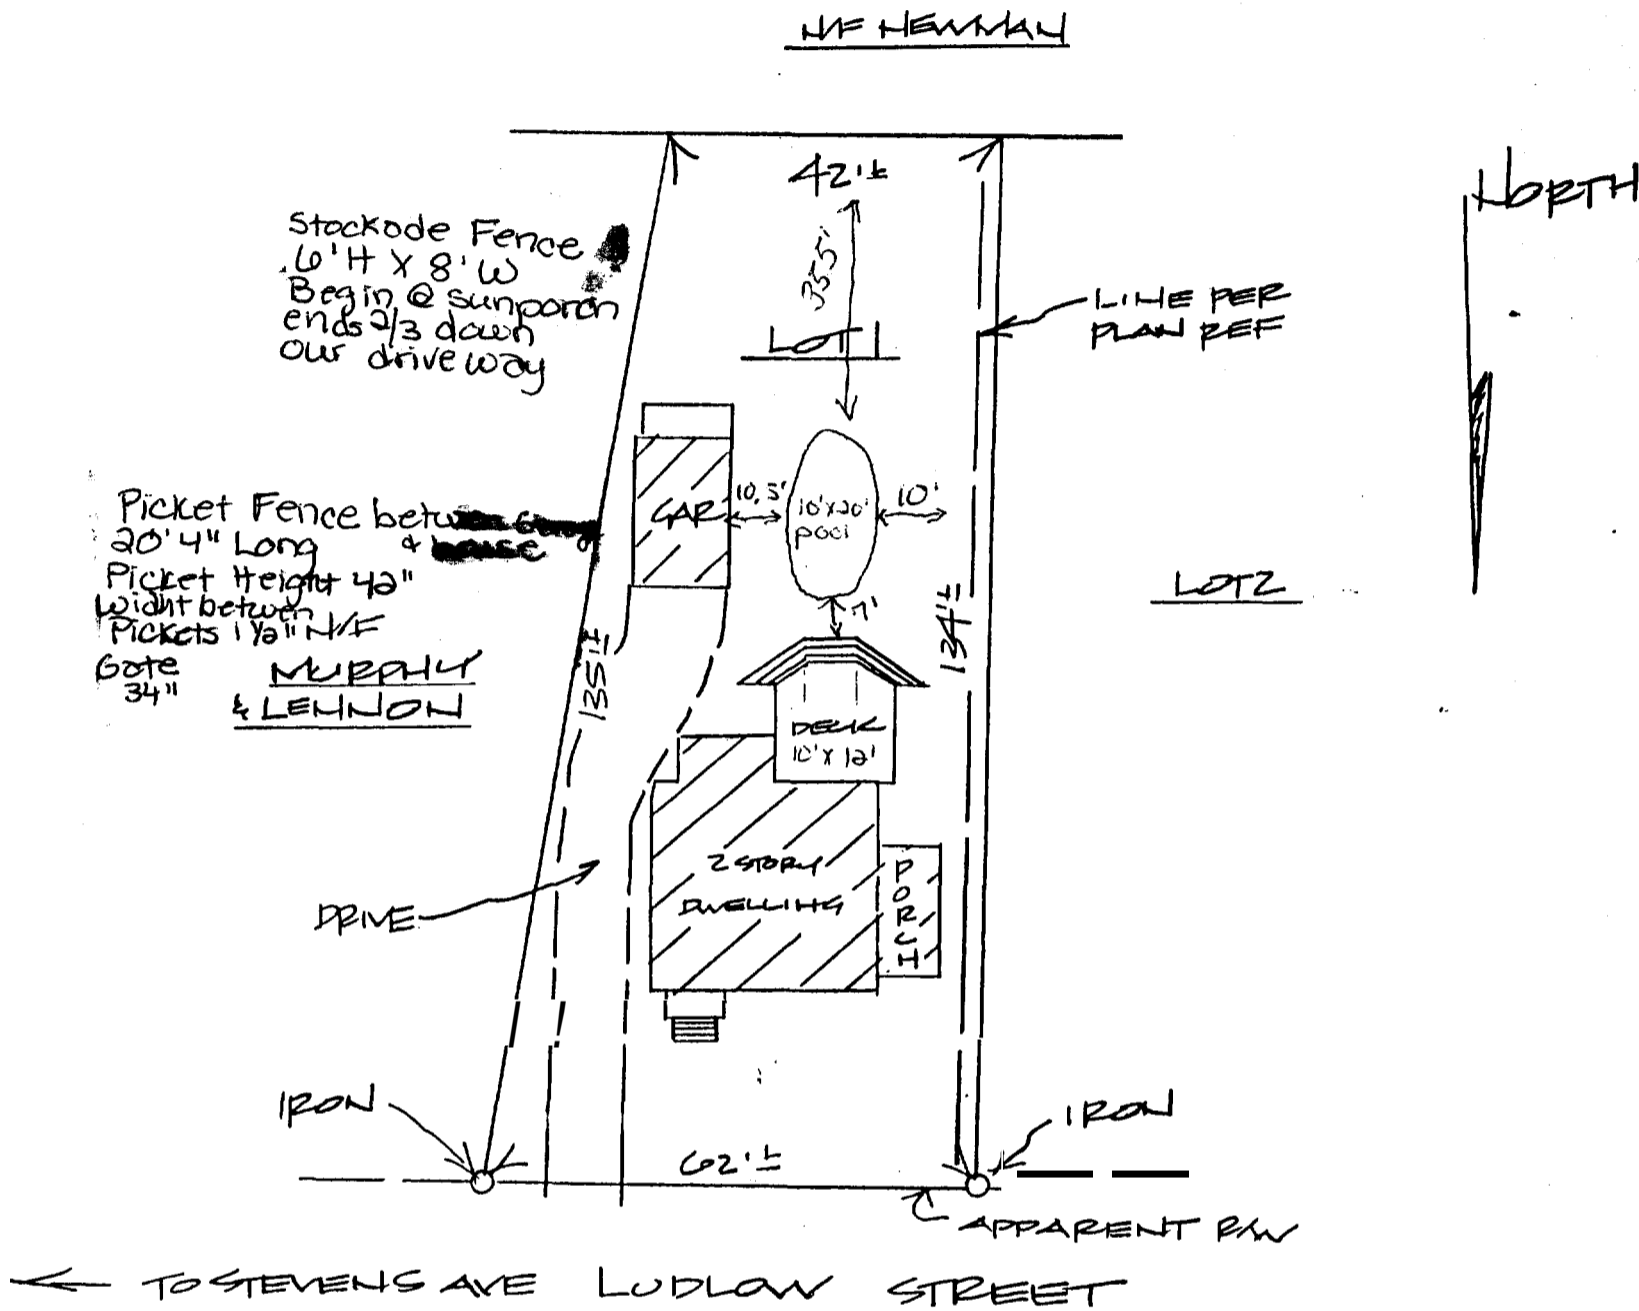 N/F NEWMAN
NORTH
42'±
35.5'
Stockode Fence
6'H X 8'W
Begin @ sunporch
ends 2/3 down
our driveway
LINE PER
PLAN REF
LOT 1
Picket Fence between
20'4" Long &
Picket Height 42"
Widht between
Pickets 1 1/2" N/F
Gate
34"
MURPHY
& LENNON
GAR
10.5'
10'x20'
pool
10'
7'
LOT 2
135'±
134'±
DECK
10'x12'
2 STORY
DWELLING
PORCH
DRIVE
IRON
IRON
62'±
APPARENT R/W
TO STEVENS AVE LUDLOW STREET